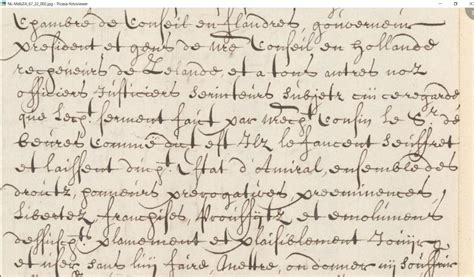 NL-MdbZA_67_22_002.jpg - Picasa-fotoviewer
Chambre de Conseil en flandres gouverneur
president et gens de nre Conseil en hollande
recepveurs de Zelande, et a tous autres noz
officiers Justiciers serviteurs subjetz cui ce regarde
que Lecp. serment faict par nrecp. Cousin le Sr. de
beures Comme dict est Ilz le facent seuffrent
et laissent ducp. Estat d'Amiral, ensemble des
droitz, honneurs prerogatives, preeminences,
Libertez franchises, prouffitz et emolumens
dessuscp. plainement et paisiblement Jouijr
et user sans luij faire, mettre, ou donner nij souffrir